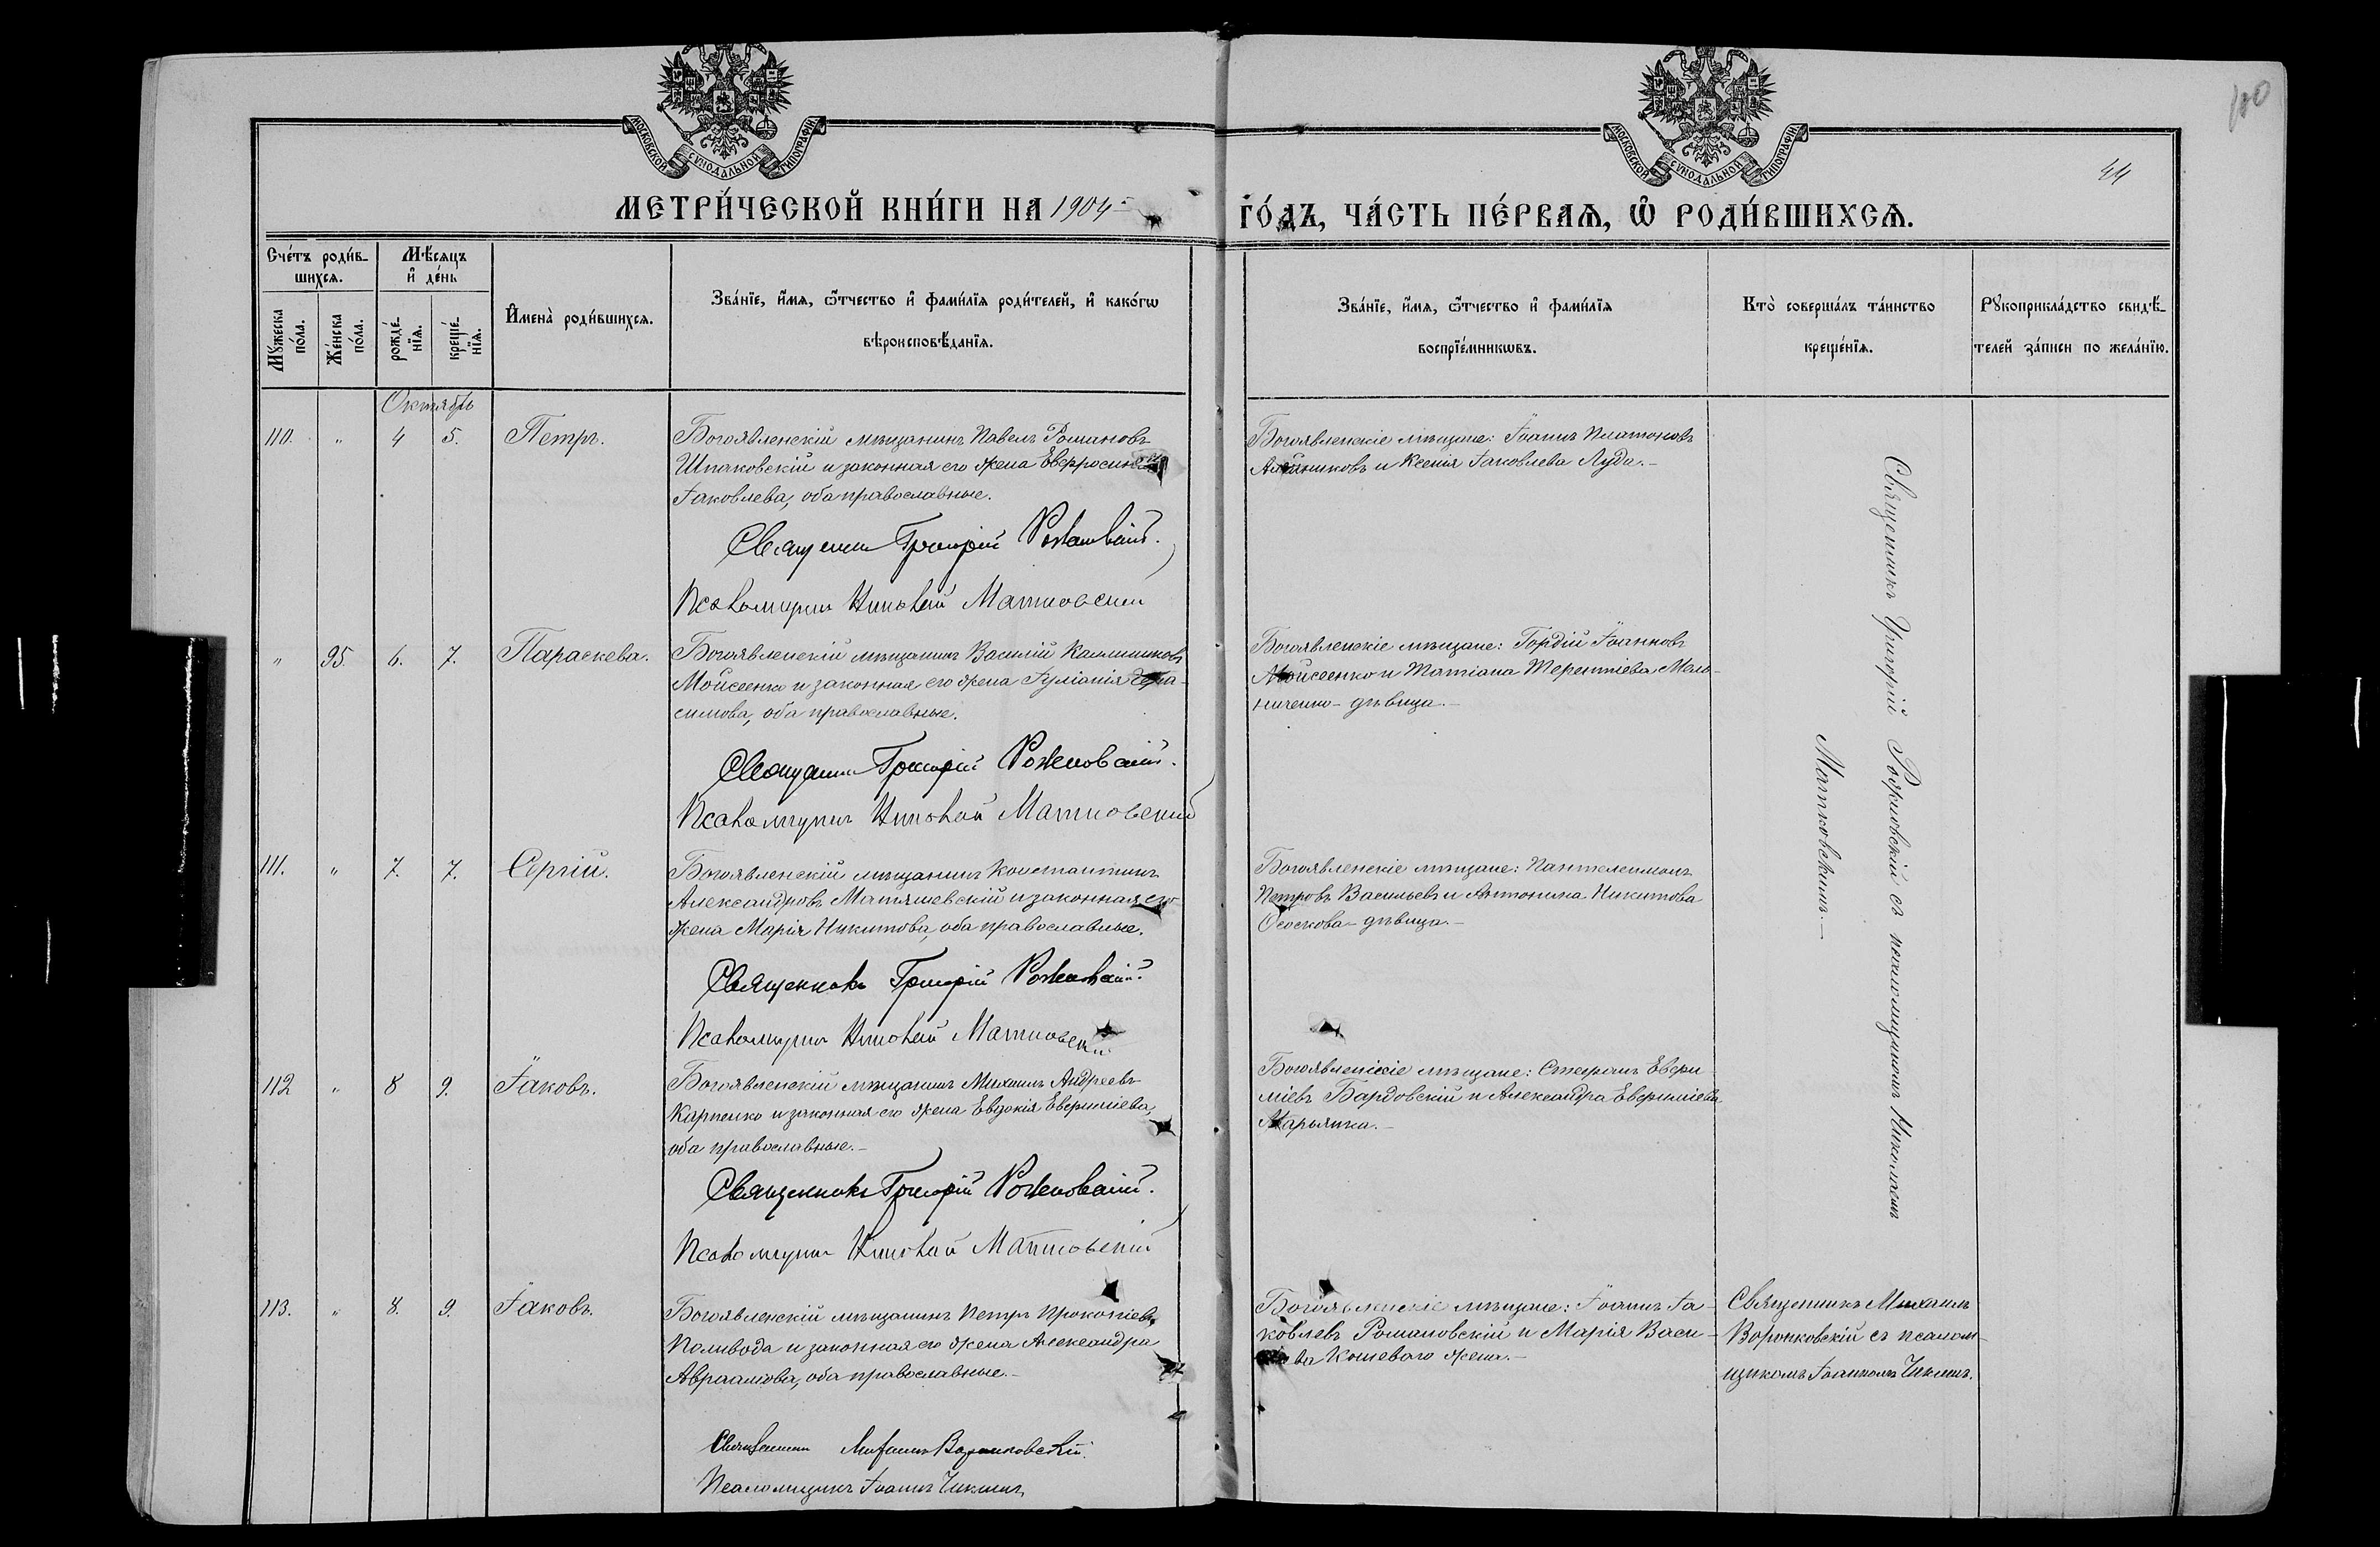 100
44
МОСКОВСКОЙ СѴНОДАЛЬНОЙ ТИПОГРАФІИ
МОСКОВСКОЙ СѴНОДАЛЬНОЙ ТИПОГРАФІИ
МЕТРИ́ЧЕСКОЙ КНИ́ГИ НА 1904 ГО́ДЪ, ЧА́СТЬ ПЕ́РВАЯ, Ѡ РОДИ́ВШИХСЯ.
Сче́тъ роди́в-
шихся.
Мꙋжеска по́ла.
Же́нска по́ла.
Мѣ́сяцъ и де́нь
рожде́-нїя.
креще́-нїя.
Имена̀ роди́вшихся.
Зва́нїе, и́мя, ѻ́тчество и фами́лїя роди́телей, и како́гѡ
вѣроисповѣ́данїя.
Зва́нїе, и́мя, ѻ́тчество и фами́лїя
воспрїе́мникѡвъ.
Кто̀ соверша́лъ та́инство
креще́нїя.
Рꙋкоприкла́дство свидѣ́-
телей за́писи по жела́нїю.
Октябрь
110. " 4 5. Петръ.
Богоявленскій мѣщанинъ Павелъ Романовъ
Шпаковскій и законная его жена Евфросинія
Іаковлева, оба православные.
Священникъ Григорій Рожновскій.
Псаломщикъ Николай Матковскій
Богоявленскіе мѣщане: Іоаннъ Платоновъ
и Ксенія Іаковлева Луда.-
Священникъ Григорій Рожновскій съ псаломщикомъ Николаемъ
Матковскимъ.-
" 95. 6. 7. Параскева.
Богоявленскій мѣщанинъ Василій
Мойсеенко и законная его жена Іуліанія Гера-
симова, оба православные.
Священникъ Григорій Рожновскій.
Псаломщикъ Николай Матковскій
Богоявленскіе мѣщане: Гордій Іоанновъ
Мойсеенко и Татіана Терентіева Мель-
ниченко - дѣвица.-
111. " 7. 7. Сергій.
Богоявленскій мѣщанинъ Константинъ
Александровъ Матяшевскій и законная его
жена Марія Никитова, оба православные.
Священникъ Григорій Рожновскій.
Псаломщикъ Николай Матковскій
Богоявленскіе мѣщане: Пантелеимонъ
Петровъ Васильевъ и Антонина Никитова
Ососкова - дѣвица.-
112 " 8 9. Іаковъ.
Богоявленскій мѣщанинъ Михаилъ Андреевъ
Карпенко и законная его жена Евдокія Евфиміева,
оба православные.-
Священникъ Григорій Рожновскій.
Псаломщикъ Николай Матковскій
Богоявленскіе мѣщане: Стефанъ Евфи-
міевъ Бардовскій и Александра Евфиміева
Марьянка.-
113. " 8. 9. Іаковъ.
Богоявленскій мѣщанинъ Петръ Прокопіевъ
Поливода и законная его жена Александра
Авраамова, оба православные.-
Священникъ Михаилъ Воронковскій.
Псаломщикъ Іоаннъ Чикминъ
Богоявленскіе мѣщане: Іоаннъ Іа-
ковлевъ Романовскій и Марія Васи-
ва Кошевого жена.-
Священникъ Михаилъ
Воронковскій съ псалом-
щикомъ Іоанномъ